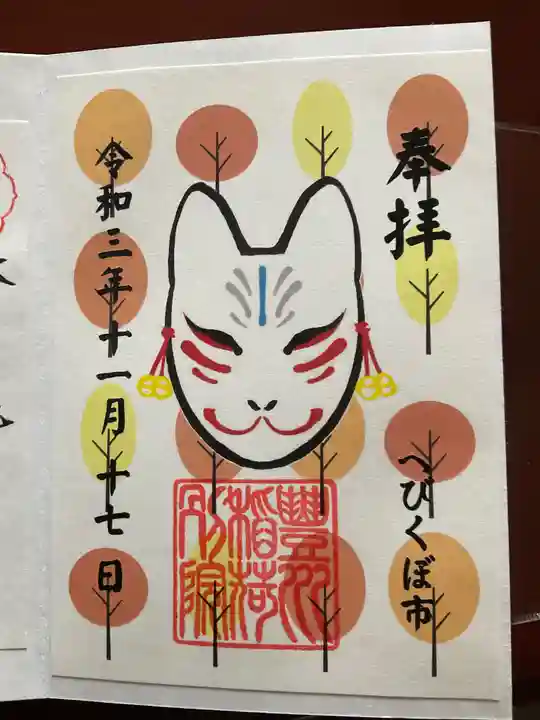 奉拝
へびくぼ市
豊川
稲荷
別院
令和三年十一月十七日